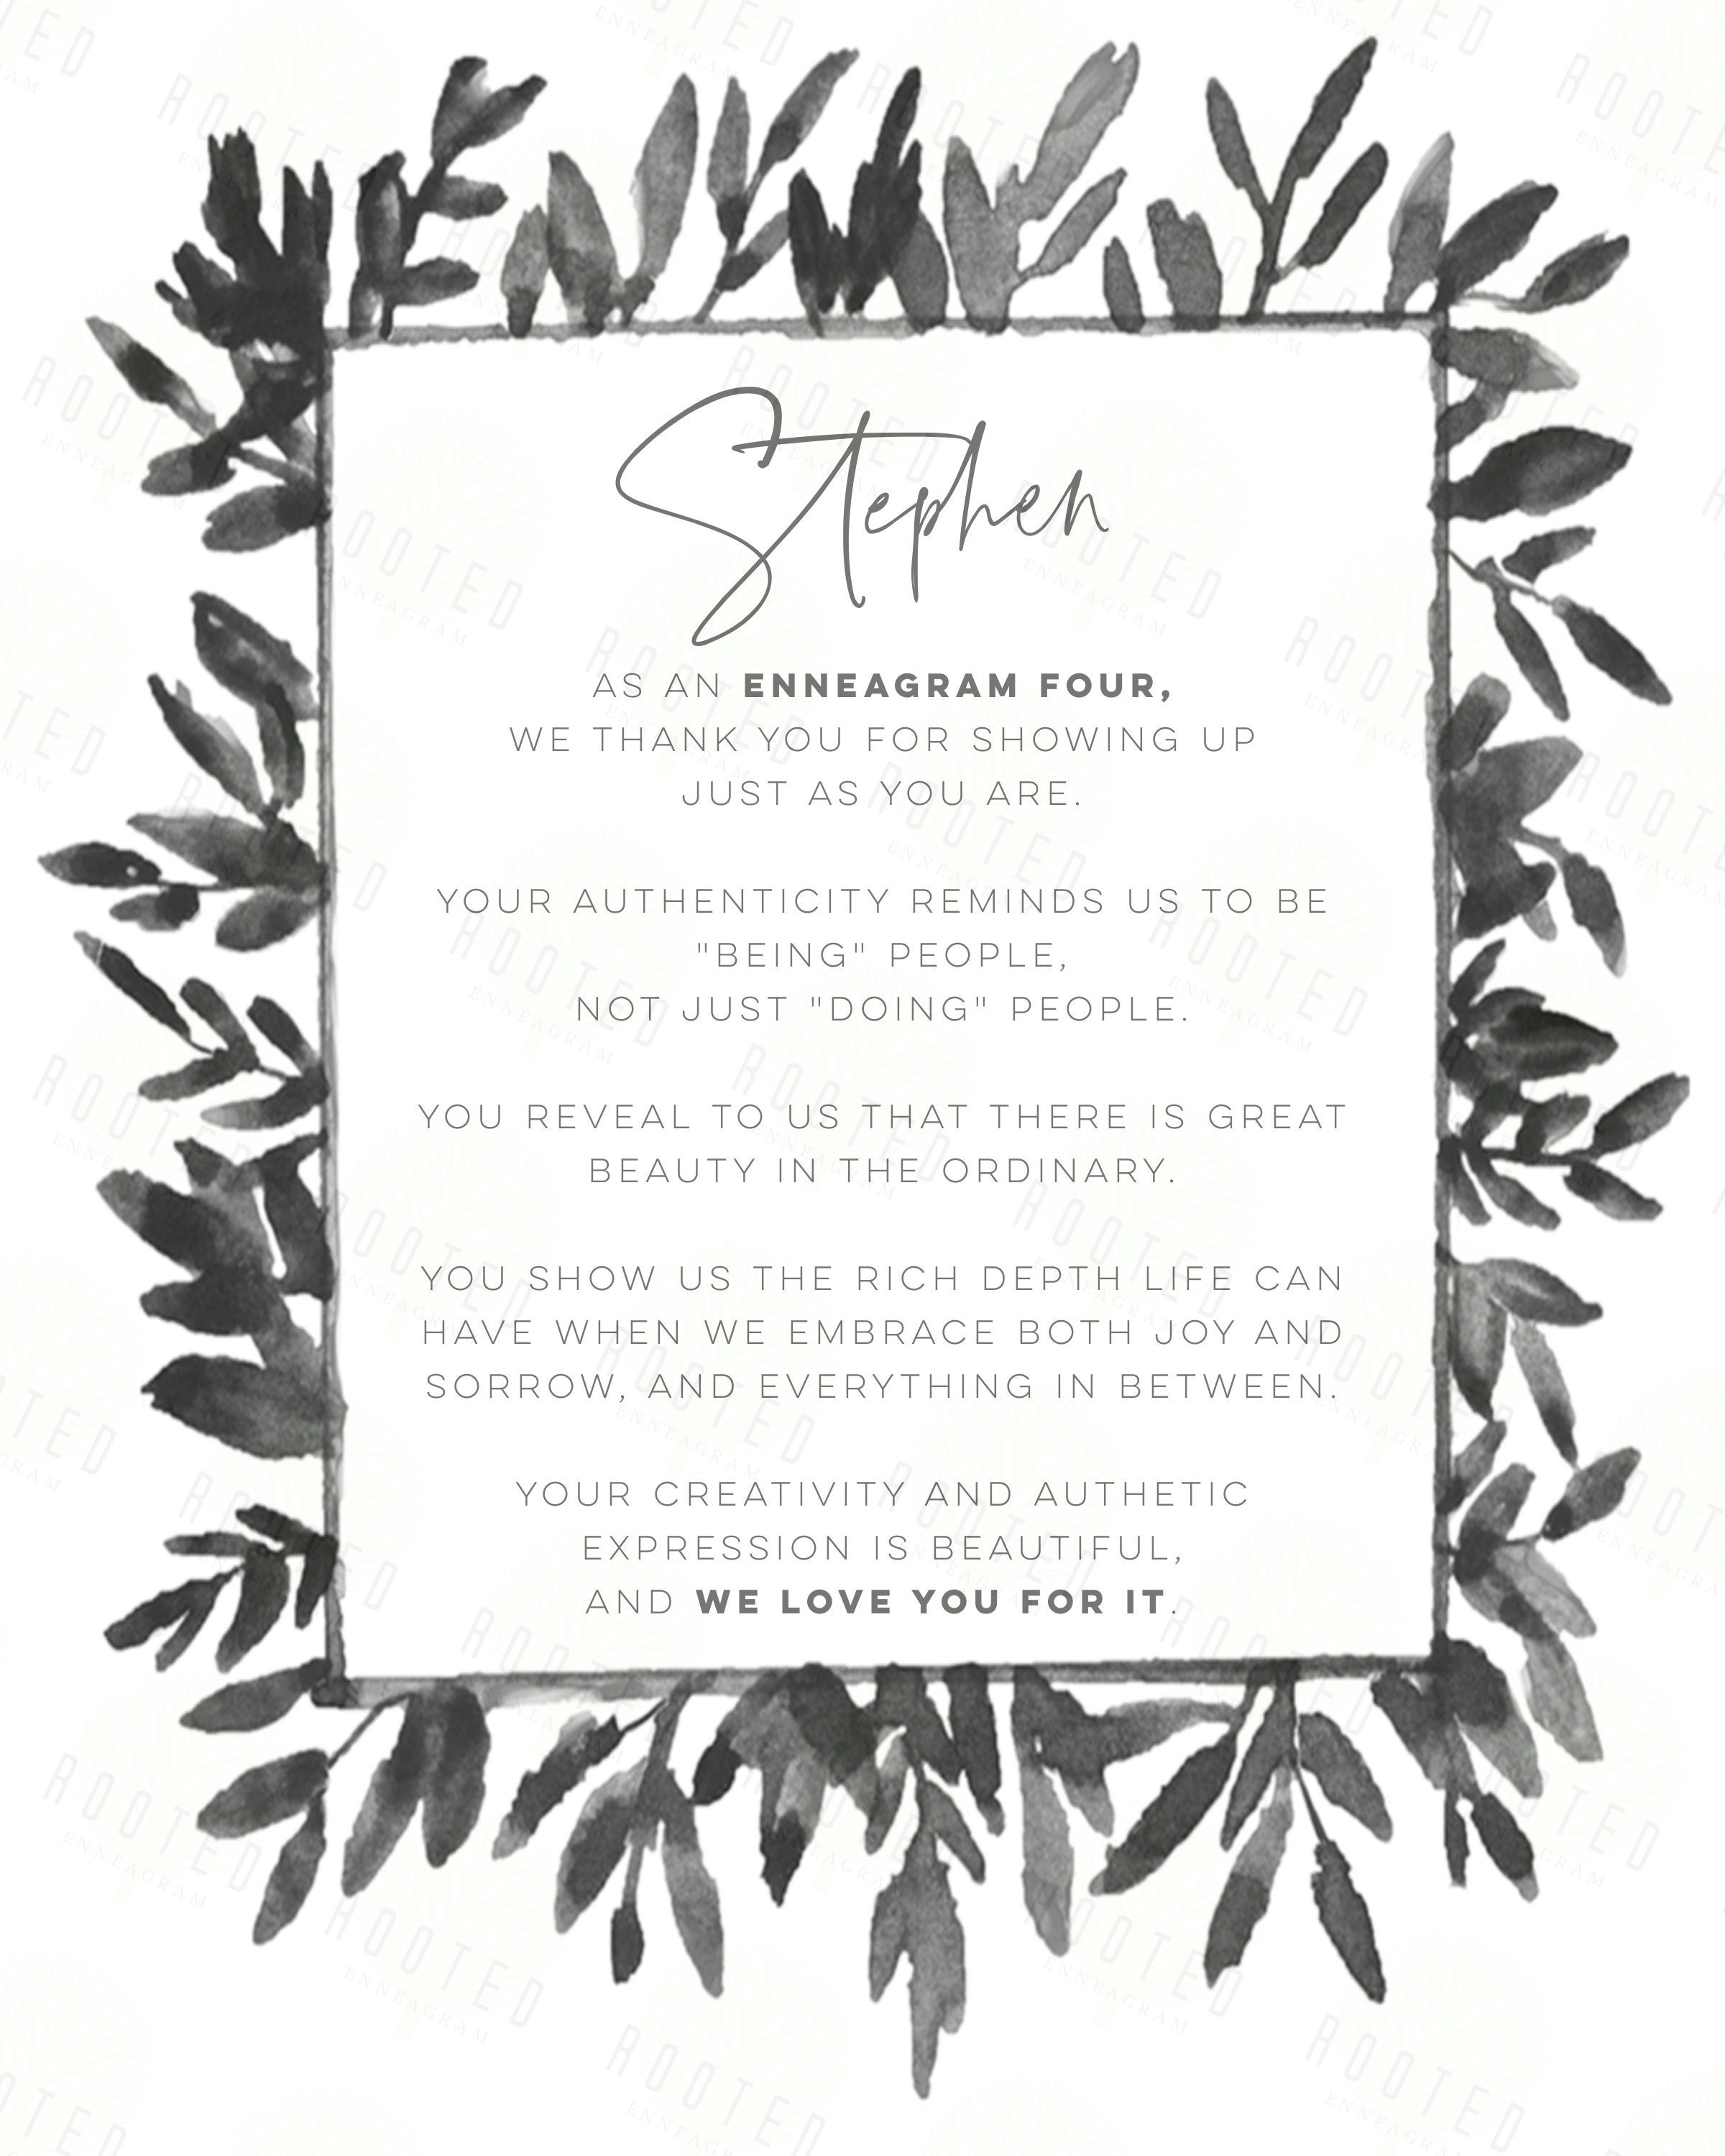 Stephen
AS AN ENNEAGRAM FOUR,
WE THANK YOU FOR SHOWING UP
JUST AS YOU ARE.
YOUR AUTHENTICITY REMINDS US TO BE
"BEING" PEOPLE,
NOT JUST "DOING" PEOPLE.
YOU REVEAL TO US THAT THERE IS GREAT
BEAUTY IN THE ORDINARY.
YOU SHOW US THE RICH DEPTH LIFE CAN
HAVE WHEN WE EMBRACE BOTH JOY AND
SORROW, AND EVERYTHING IN BETWEEN.
YOUR CREATIVITY AND AUTHETIC
EXPRESSION IS BEAUTIFUL,
AND WE LOVE YOU FOR IT.
ROOTED
ENNEAGRAM